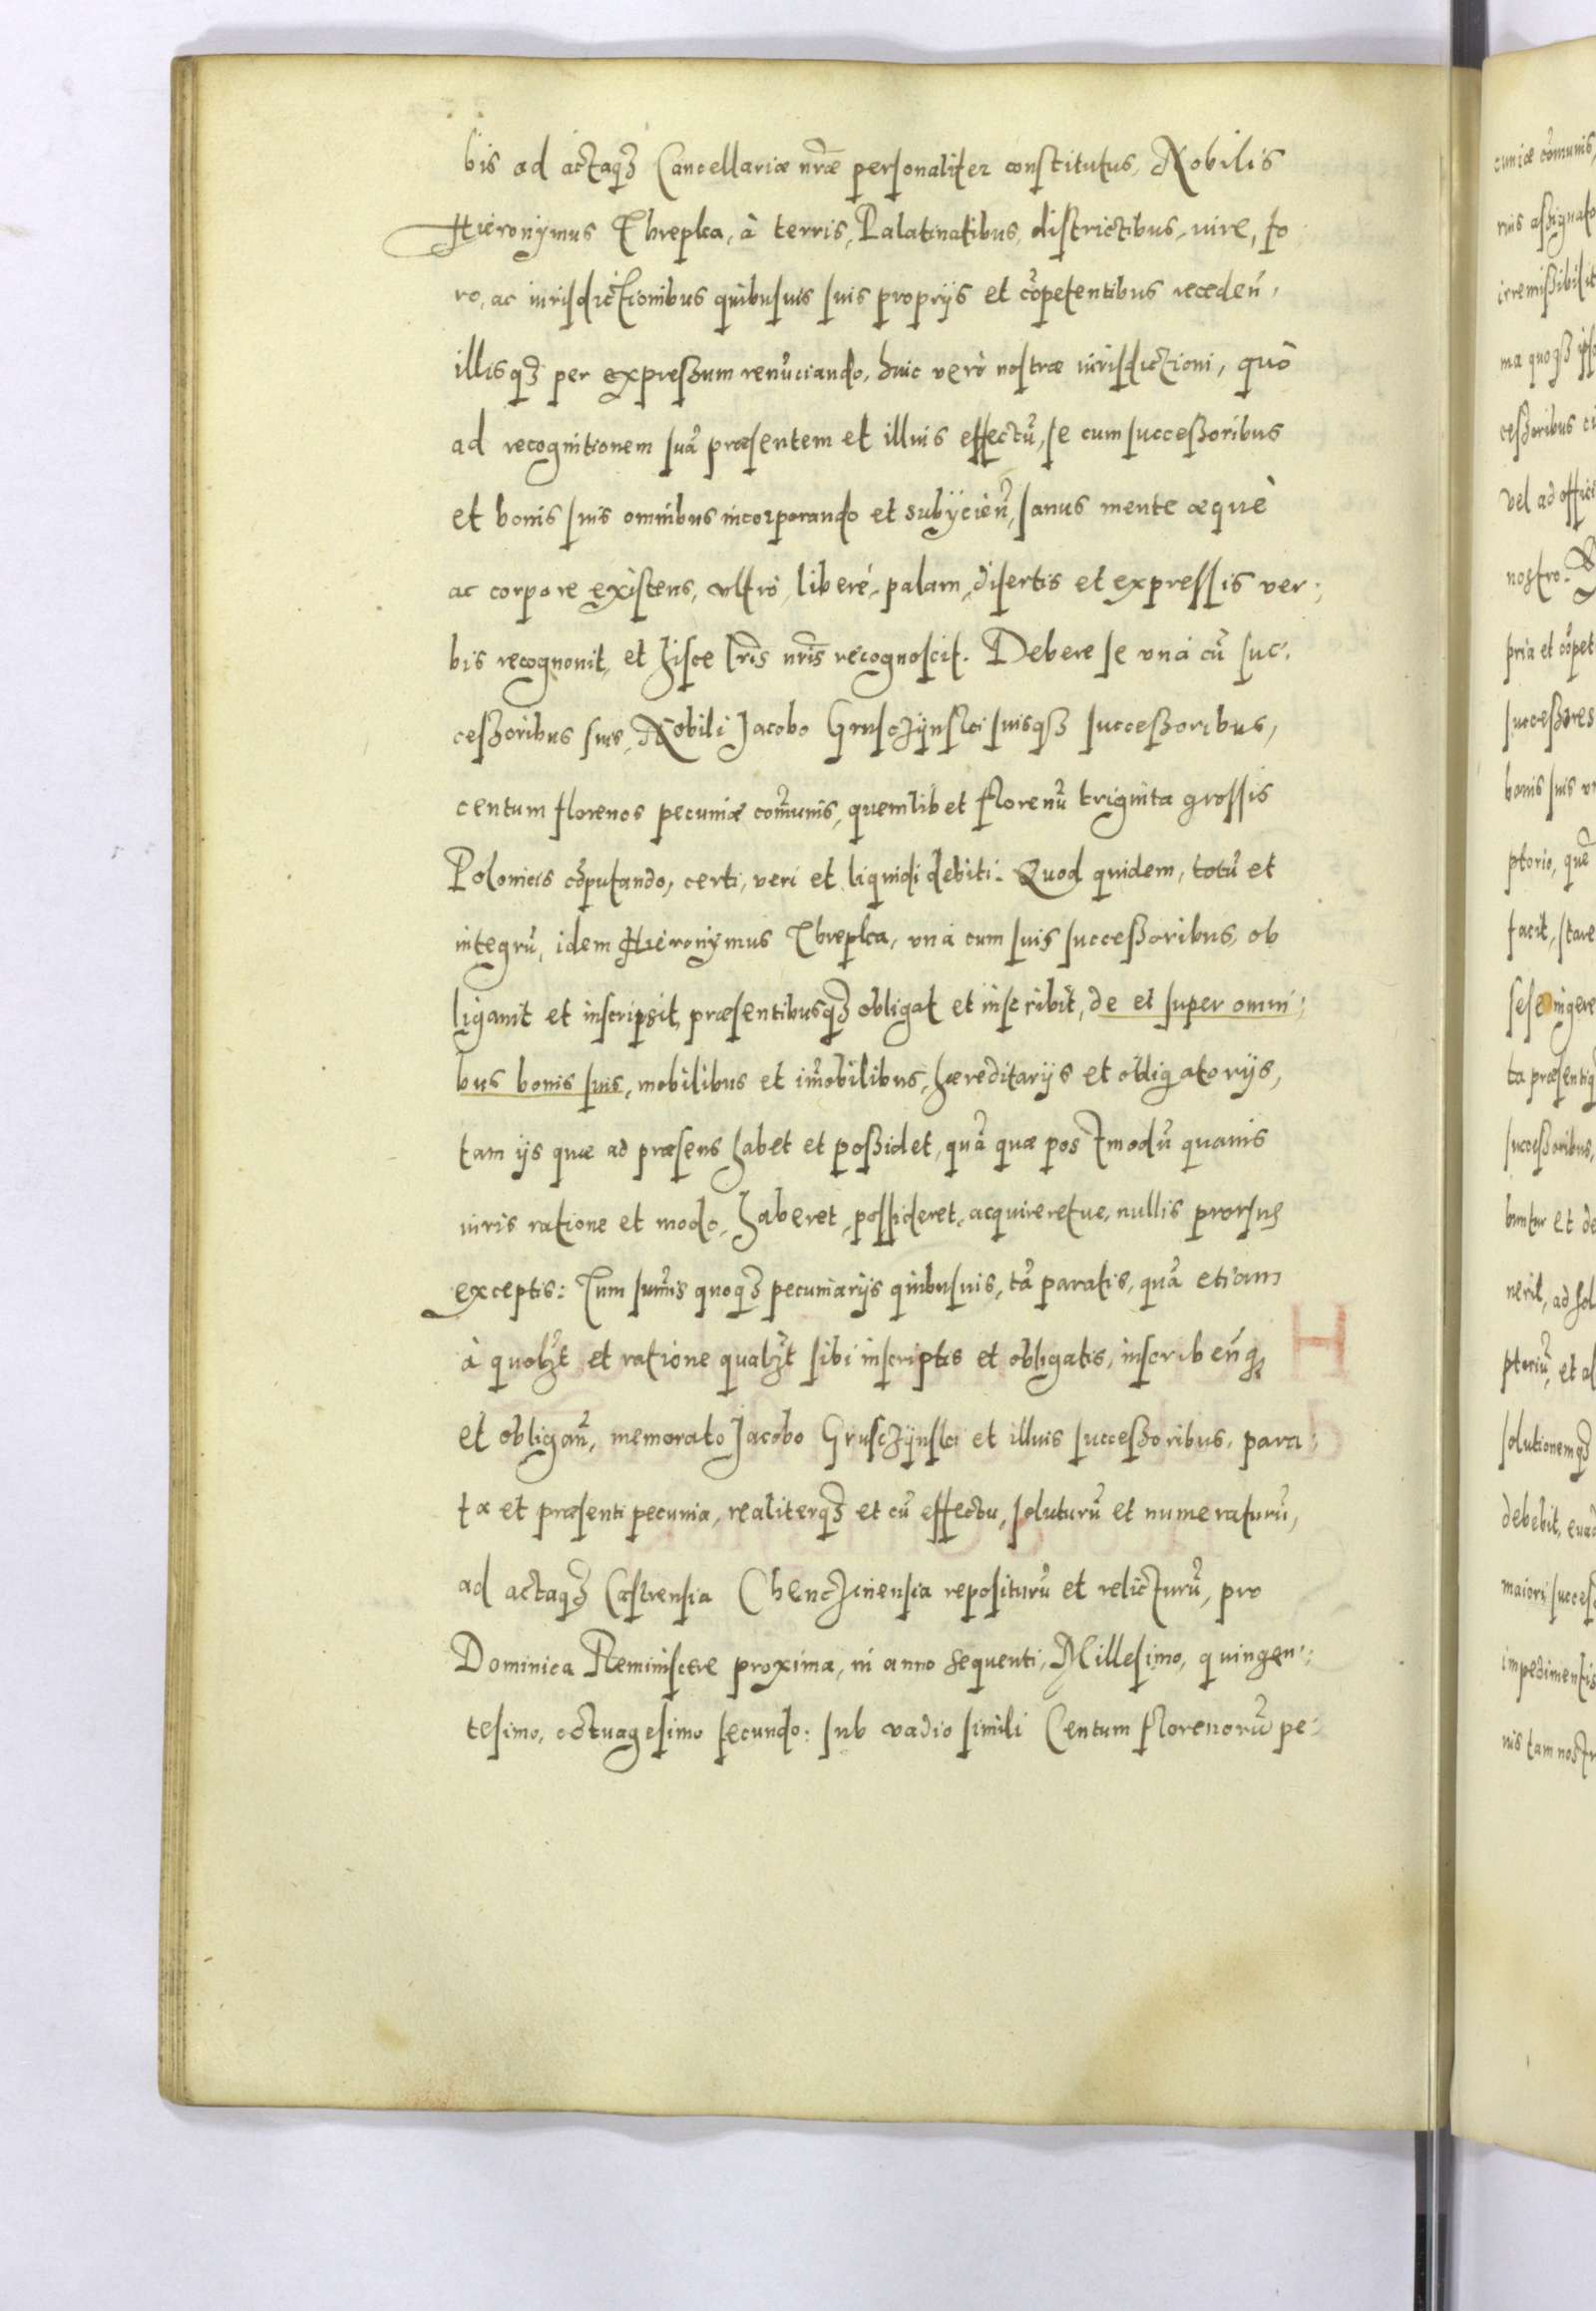 bis ad actaqꝫ Cancellariæ nr̃æ personaliter constitutus, Nobilis
Hieronÿmus Threpka, à terris, Palatinatibus, districtibus, iure, fo
ro, ac iurisdictionibus quibusuis suis proprijs et cõpetentibus receden̄,
illisqꝫ per expreßum renũciando, huic verò nostræ iurisdictioni, quò
ad recognitionem suã præsentem et illius effectũ, se cum succeßoribus
et bonis suis omnibus incorporando et subÿcien̄, sanus mente æquè
ac corpore existens, vltrò, liberè, palam, disertis et expressis ver:
bis recognouit, et hisce lr̃is nr̃is recognoscit. Debere se vnà cũ suc:
ceßoribus suis, Nobili Jacobo Grusczÿnski suisqꝫ succeßoribus,
centum florenos pecuniæ cõmunis, quemlibet florenũ triginta grossis
Polonicis cõputando, certi, veri et liquidi debiti. Quod quidem, totũ et
integrũ, idem Hieronÿmus Threpka, vnà cum suis succeßoribus, ob
ligauit et inscripsit, præsentibusqꝫ obligat et inscribit, de et super omni:
bus bonis suis, mobilibus et im̃obilibus, hæreditarijs et obligatorijs,
tam ijs quæ ad præsens habet et poßidet, quã quæ postmodũ quauis
iuris ratione et modo, haberet, possideret, acquireretue, nullis prorsus
exceptis: Tum sum̃is quoqꝫ pecuniarijs quibusuis, tã paratis, quã etiam
à quolꝫt et ratione qualꝫt sibi inscriptis et obligatis, inscriben̄qꝫ
et obligan̄, memorato Jacobo Grusczÿnski et illius succeßoribus, para:
ta et præsenti pecunia, realiterqꝫ et cũ effectu, soluturũ et numeraturũ,
ad actaqꝫ Castrensia Chenczinensia repositurũ et relicturũ, pro
Dominica Reminiscere proxima, in anno sequenti, Millesimo, quingen:
tesimo, octuagesimo secundo: sub vadio simili Centum florenorũ pe:
cuniæ cõmunis,
irremißibilit
ma quoqꝫ ips
ceßoribus
vel ad offici
nostro.
pria et cõpet
succeßores
bonis suis
ptorio, quẽ
facit, stare
sese ingere
ta præsentiq
succeßoribus,
buntur et de
nerit, ad sol
ptoriũ, et
solutionemqꝫ
debebit, euad
maiori, succeß
impedimentis
nis tam nostr